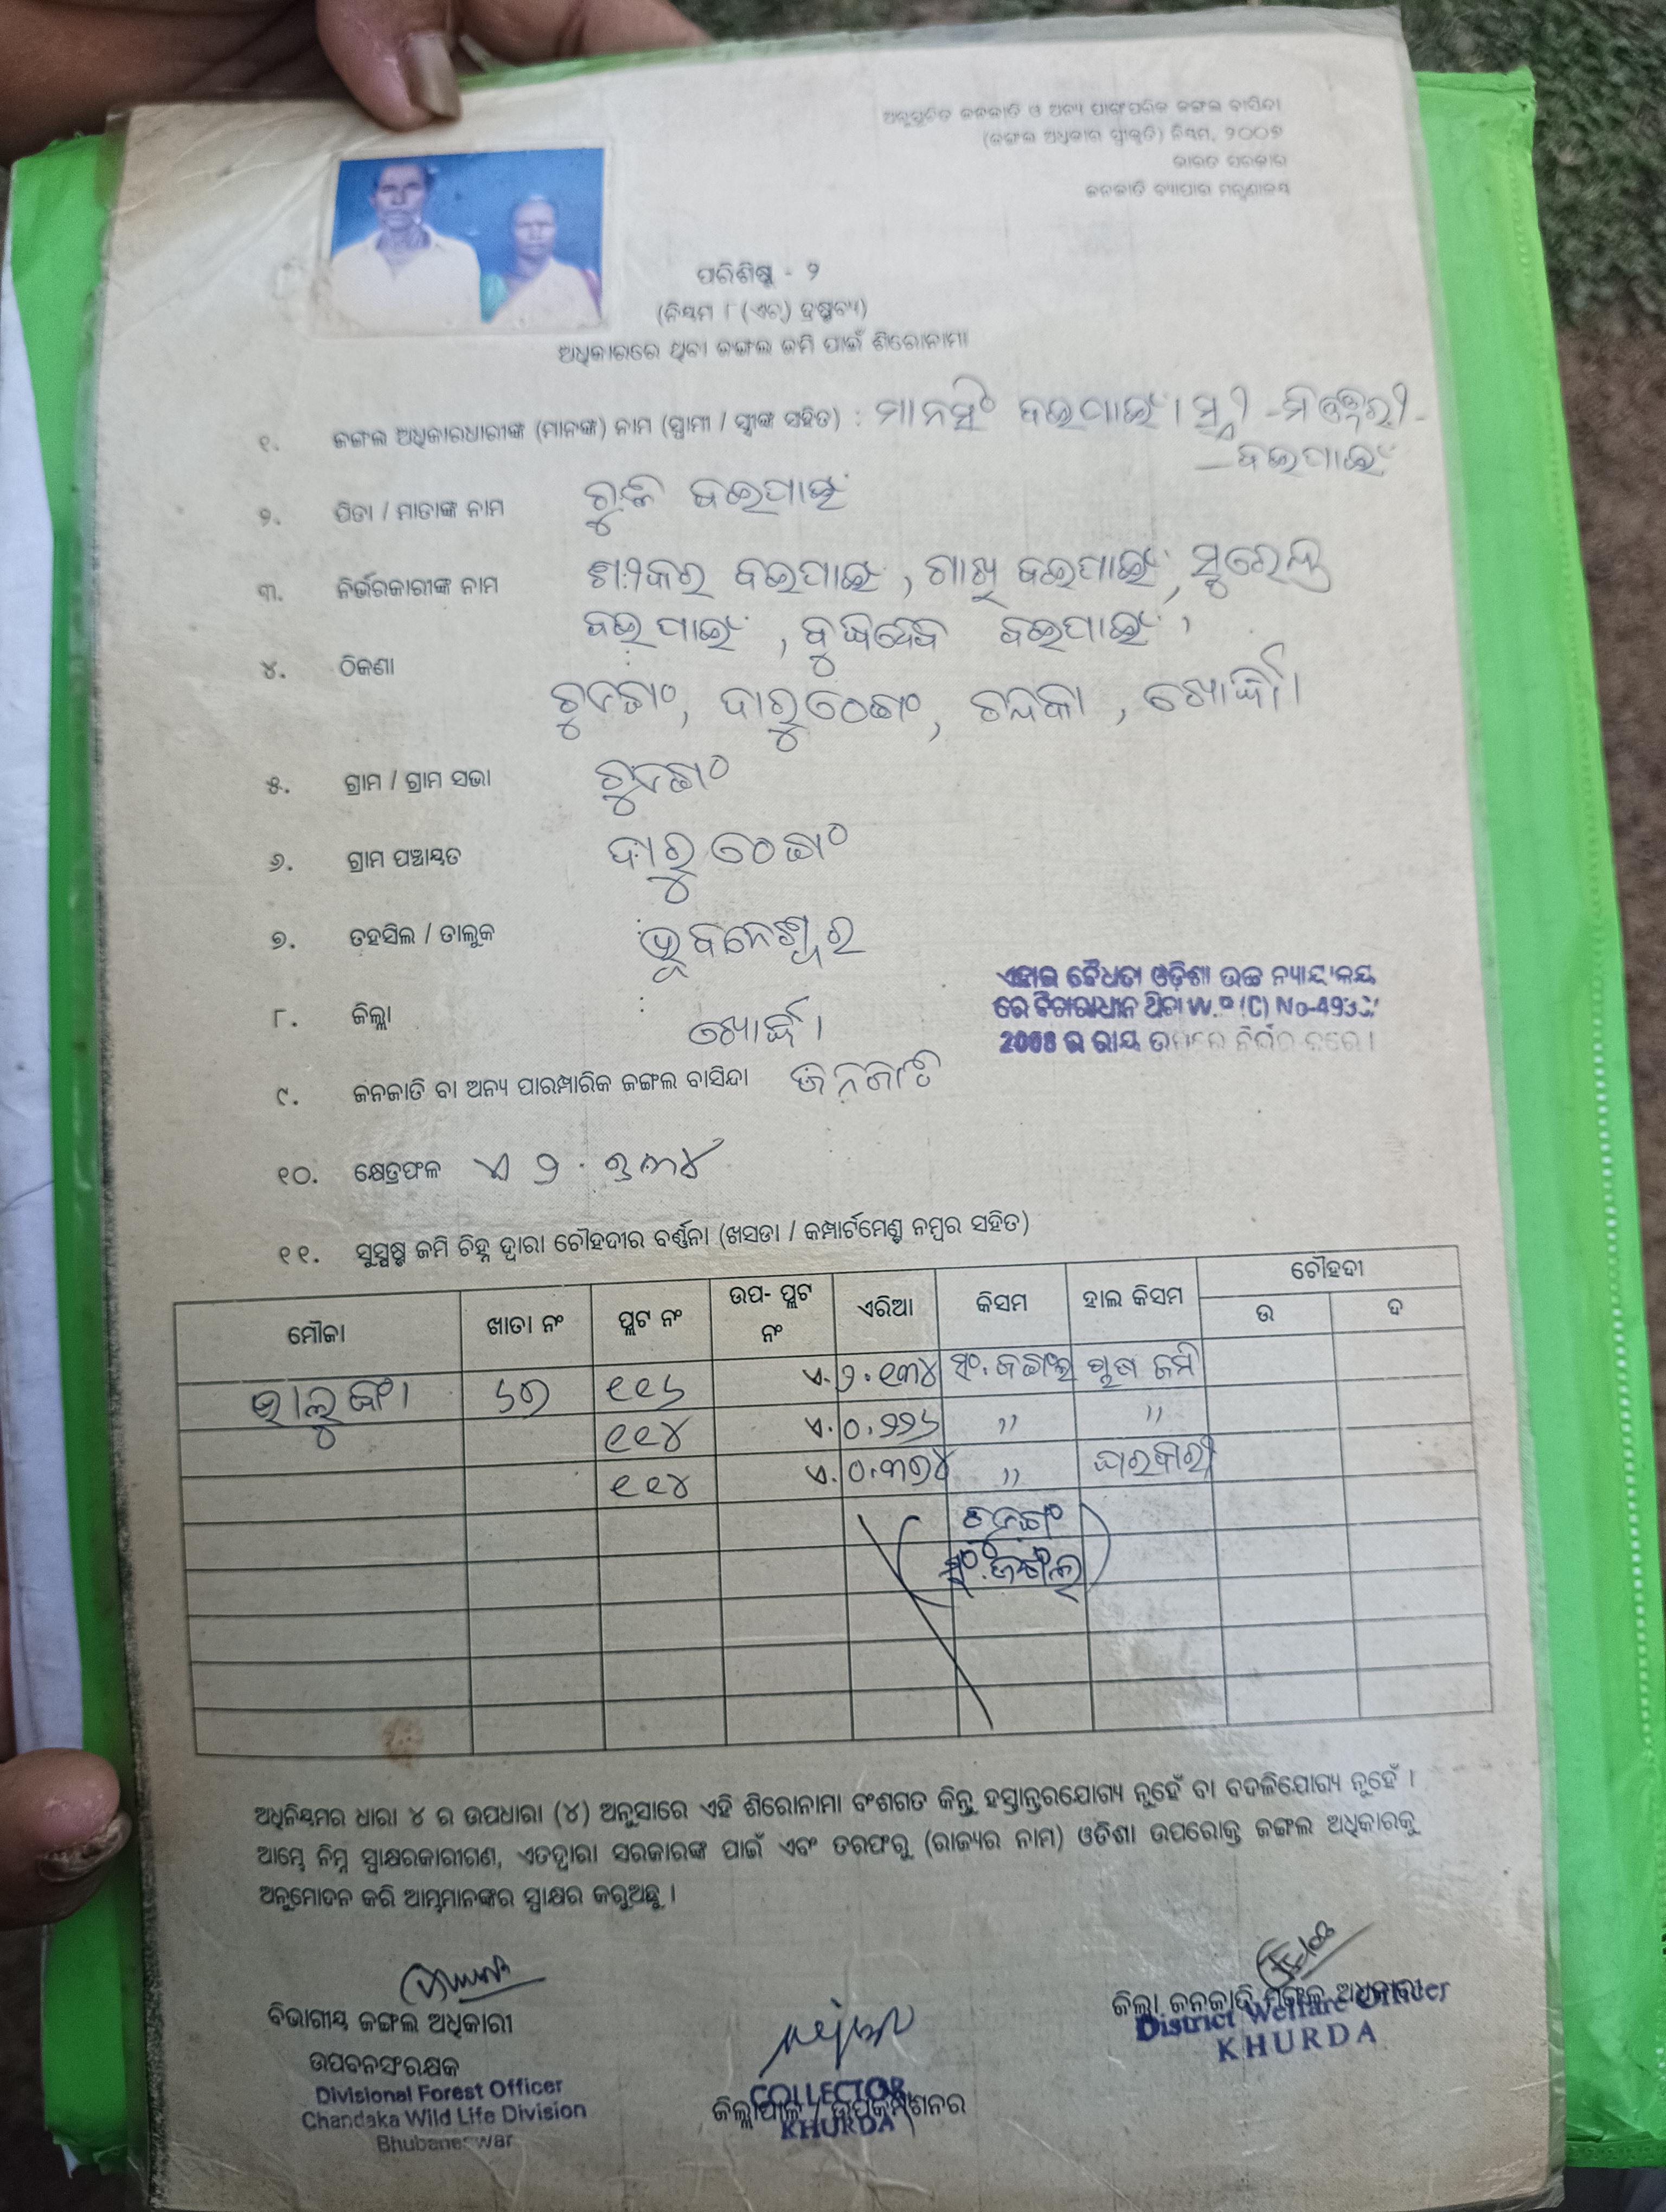 ଅନୁସୂଚିତ ଜନଜାତି ଓ ଅନ୍ୟ ପାରମ୍ପରିକ ଜଙ୍ଗଲ ବାସିନ୍ଦା
(ଜଙ୍ଗଲ ଅଧିକାର ସ୍ୱୀକୃତି) ନିୟମ, ୨୦୦୭
ଭାରତ ସରକାର
ଜନଜାତି ବ୍ୟାପାର ମନ୍ତ୍ରଣାଳୟ
ପରିଶିଷ୍ଟ - ୨
(ନିୟମ ୮ (ଏଚ୍) ଦ୍ରଷ୍ଟବ୍ୟ)
ଅଧିକାରରେ ଥିବା ଜଙ୍ଗଲ ଜମି ପାଇଁ ଶିରୋନାମା
୧. ଜଙ୍ଗଲ ଅଧିକାରଧାରୀଙ୍କ (ମାନଙ୍କ) ନାମ (ସ୍ୱାମୀ / ସ୍ତ୍ରୀଙ୍କ ସହିତ) : ମାନସିଂ ବଇପାଇ । ସ୍ତ୍ରୀ -
ବଇପାଇ
୨. ପିତା / ମାତାଙ୍କ ନାମ ବଇପାଇ
୩. ନିର୍ଭରକାରୀଙ୍କ ନାମ ବଇପାଇ, ବଇପାଇ, ସୁରେନ୍ଦ୍ର
ବଇପାଇ, ବୁଦ୍ଧଦେବ ବଇପାଇ
୪. ଠିକଣା
ଦାରୁଠେଙ୍ଗ, ଚନ୍ଦକା, ଖୋର୍ଦ୍ଧା ।
୫. ଗ୍ରାମ / ଗ୍ରାମ ସଭା
୬. ଗ୍ରାମ ପଞ୍ଚାୟତ ଦାରୁଠେଙ୍ଗ
୭. ତହସିଲ / ତାଲୁକ ଭୁବନେଶ୍ୱର
ଏହାର ବୈଧତା ଓଡ଼ିଶା ଉଚ୍ଚ ନ୍ୟାୟାଳୟ
ରେ ବିଚାରାଧୀନ ଥିବା W.P (C) No-4933/
2008 ର ରାୟ ଉପରେ ନିର୍ଭର କରେ ।
୮. ଜିଲ୍ଲା : ଖୋର୍ଦ୍ଧା ।
୯. ଜନଜାତି ବା ଅନ୍ୟ ପାରମ୍ପାରିକ ଜଙ୍ଗଲ ବାସିନ୍ଦା ଜନଜାତି
୧୦. କ୍ଷେତ୍ରଫଳ ଏ ୨.
୧୧. ସୁସ୍ପଷ୍ଟ ଜମି ଚିହ୍ନ ଦ୍ୱାରା ଚୌହଦୀର ବର୍ଣ୍ଣନା (ଖସଡା / କମ୍ପାର୍ଟମେଣ୍ଟ ନମ୍ବର ସହିତ)
ମୌଜା ଖାତା ନଂ ପ୍ଲଟ ନଂ ଉପ- ପ୍ଲଟ ନଂ ଏରିଆ କିସମ ହାଲ କିସମ ଚୌହଦୀ
ଉ ଦ
୬୭ ୧୧୬ ଏ. ୨.୧୩୪ ଜମି
୧୧୪ ଏ. ୦.୨୨୬ ,, ,,
୧୧୪ ଏ. ୦.୩୭୪ ,, ଘରବାରୀ
ଅଧିନିୟମର ଧାରା ୪ ର ଉପଧାରା (୪) ଅନୁସାରେ ଏହି ଶିରୋନାମା ବଂଶଗତ କିନ୍ତୁ ହସ୍ତାନ୍ତରଯୋଗ୍ୟ ନୁହେଁ ବା ବଦଳିଯୋଗ୍ୟ ନୁହେଁ ।
ଆମ୍ଭେ ନିମ୍ନ ସ୍ୱାକ୍ଷରକାରୀଗଣ, ଏତଦ୍ୱାରା ସରକାରଙ୍କ ପାଇଁ ଏବଂ ତରଫରୁ (ରାଜ୍ୟର ନାମ) ଓଡିଶା ଉପରୋକ୍ତ ଜଙ୍ଗଲ ଅଧିକାରକୁ
ଅନୁମୋଦନ କରି ଆମ୍ଭମାନଙ୍କର ସ୍ୱାକ୍ଷର କରୁଅଛୁ ।
ବିଭାଗୀୟ ଜଙ୍ଗଲ ଅଧିକାରୀ
ଉପବନସଂରକ୍ଷକ
Divisional Forest Officer
Chandaka Wild Life Division
Bhubaneswar
ଜିଲ୍ଲାପାଳ / ଉପକମିଶନର
COLLECTOR
KHURDA
ଜିଲ୍ଲା ଜନଜାତି ମଙ୍ଗଳ ଅଧିକାରୀ
District Welfare Officer
KHURDA